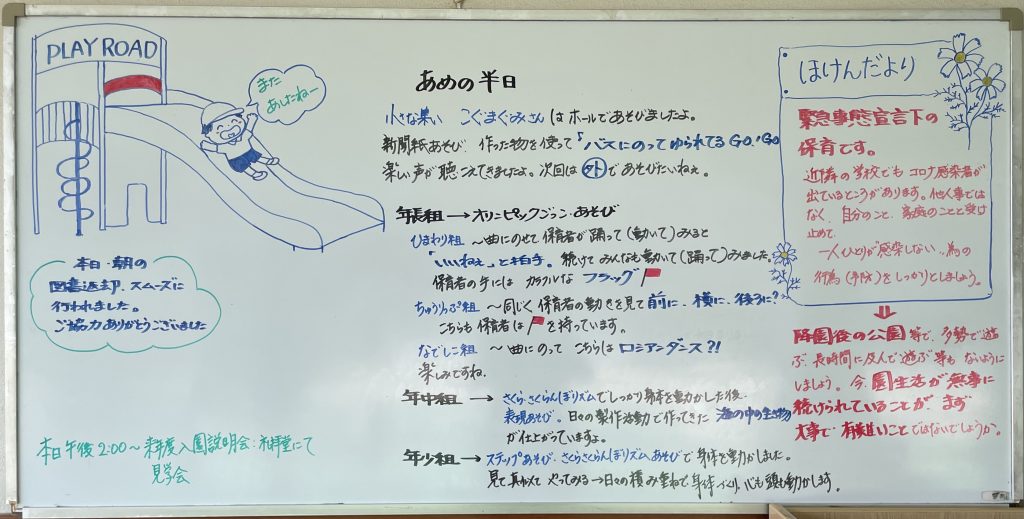 PLAY ROAD
また
あしたねー
本日・朝の
図書返却、スムーズに
行われました。
ご協力ありがとうございました
本日午後2:00～来年度入園説明会:礼拝堂にて
見学会
あめの半日
小さな集い こぐまぐみさんはホールであそびましたよ。
新聞紙あそび、作った物を使って「バスにのってゆられてるGO!GO
楽しい声が聴こえてきましたよ。次回は外であそびたいねぇ。
年長組→オリンピックごっこ・あそび
ひまわり組 ～曲にのせて保育者が踊って(動いて)みると
「いいねぇ」と拍手。続けてみんなも動いて(踊って)みました。
保育者の手には カラフルな フラッグ
ちゅうりっぷ組 ～同じく保育者の動きを見て前に、横に、後ろに?
こちらも保育者は を持っています。
なでしこ組 ～曲にのって こちらはロシアンダンス?!
楽しみですね。
年中組→さくら・さくらんぼリズムでしっかり身体を動かした後、
表現あそび。日々の製作活動で作ってきた 海の中の生物
が仕上がっていますよ。
年少組→ステップあそび、さくらさくらんぼリズムあそびで身体を動かしました。
見て真似て やってみる→日々の積み重ねで身体づくり、心も頭も動かします。
ほけんだより
緊急事態宣言下の
保育です。
近隣の学校でも コロナ感染者が
出ているところがあります。他人事では
なく、自分のこと、家庭のことと受け
止めて、
一人ひとりが感染しない為の
行為(予防)をしっかりとしましょう。
降園後の公園等で、多勢で遊
ぶ、長時間に及んで遊ぶ等もないように
しましょう。今、園生活が無事に
続けられていることが、まず
大事で、有難いことではないでしょうか。